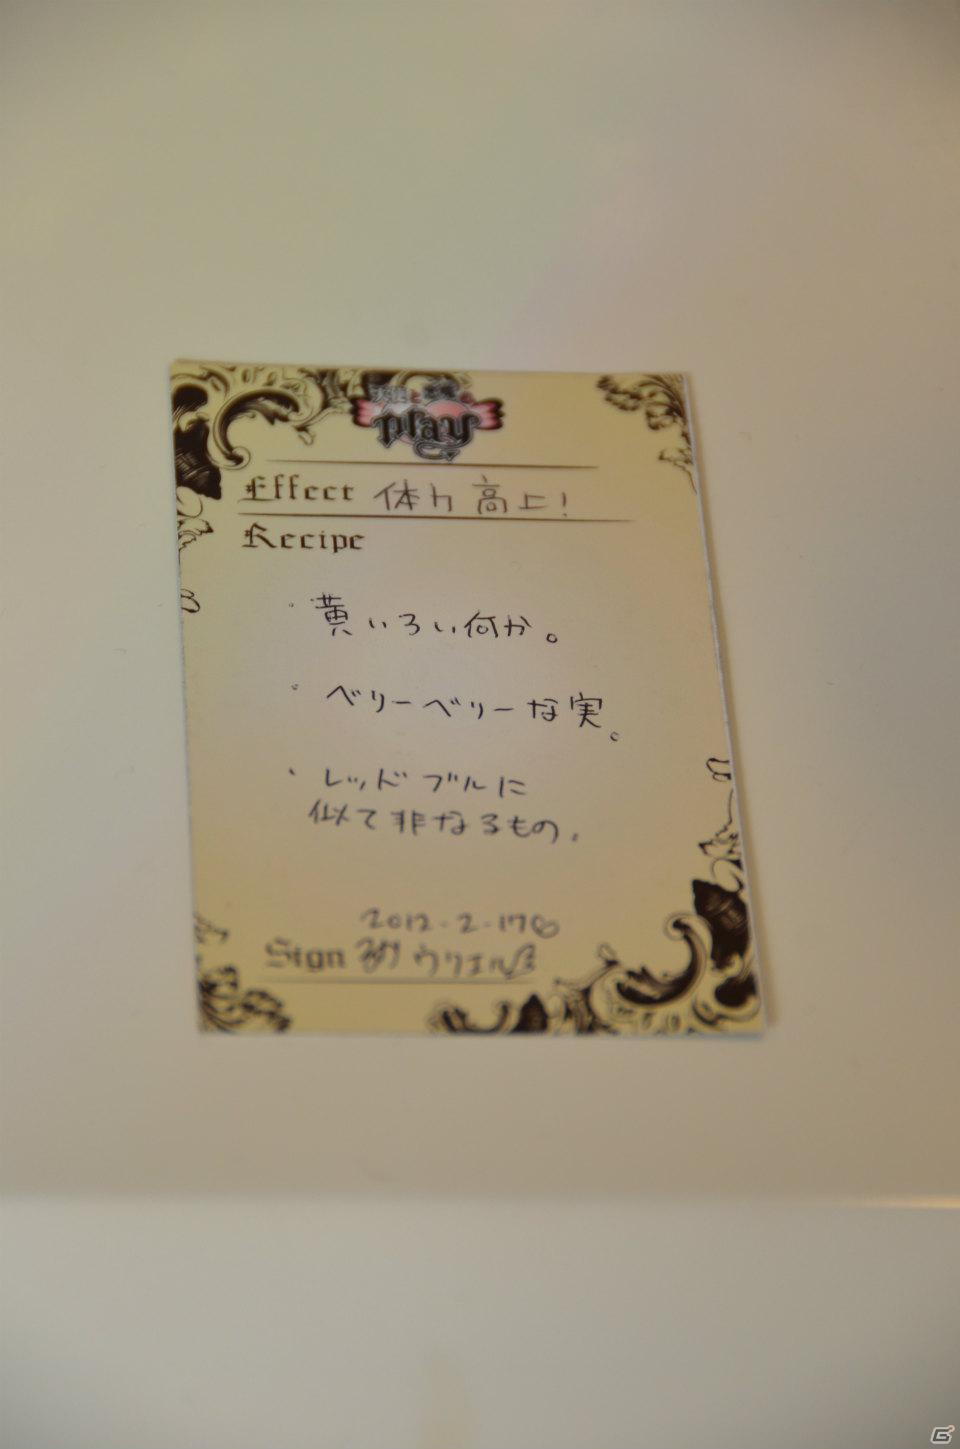 天使と悪魔の
play
Effect 体力高上!
Recipe
・黄いろい何か。
・ベリーベリーな実。
・レッドブルに
似て非なるもの。
2012.2.17
Sign ウリエル